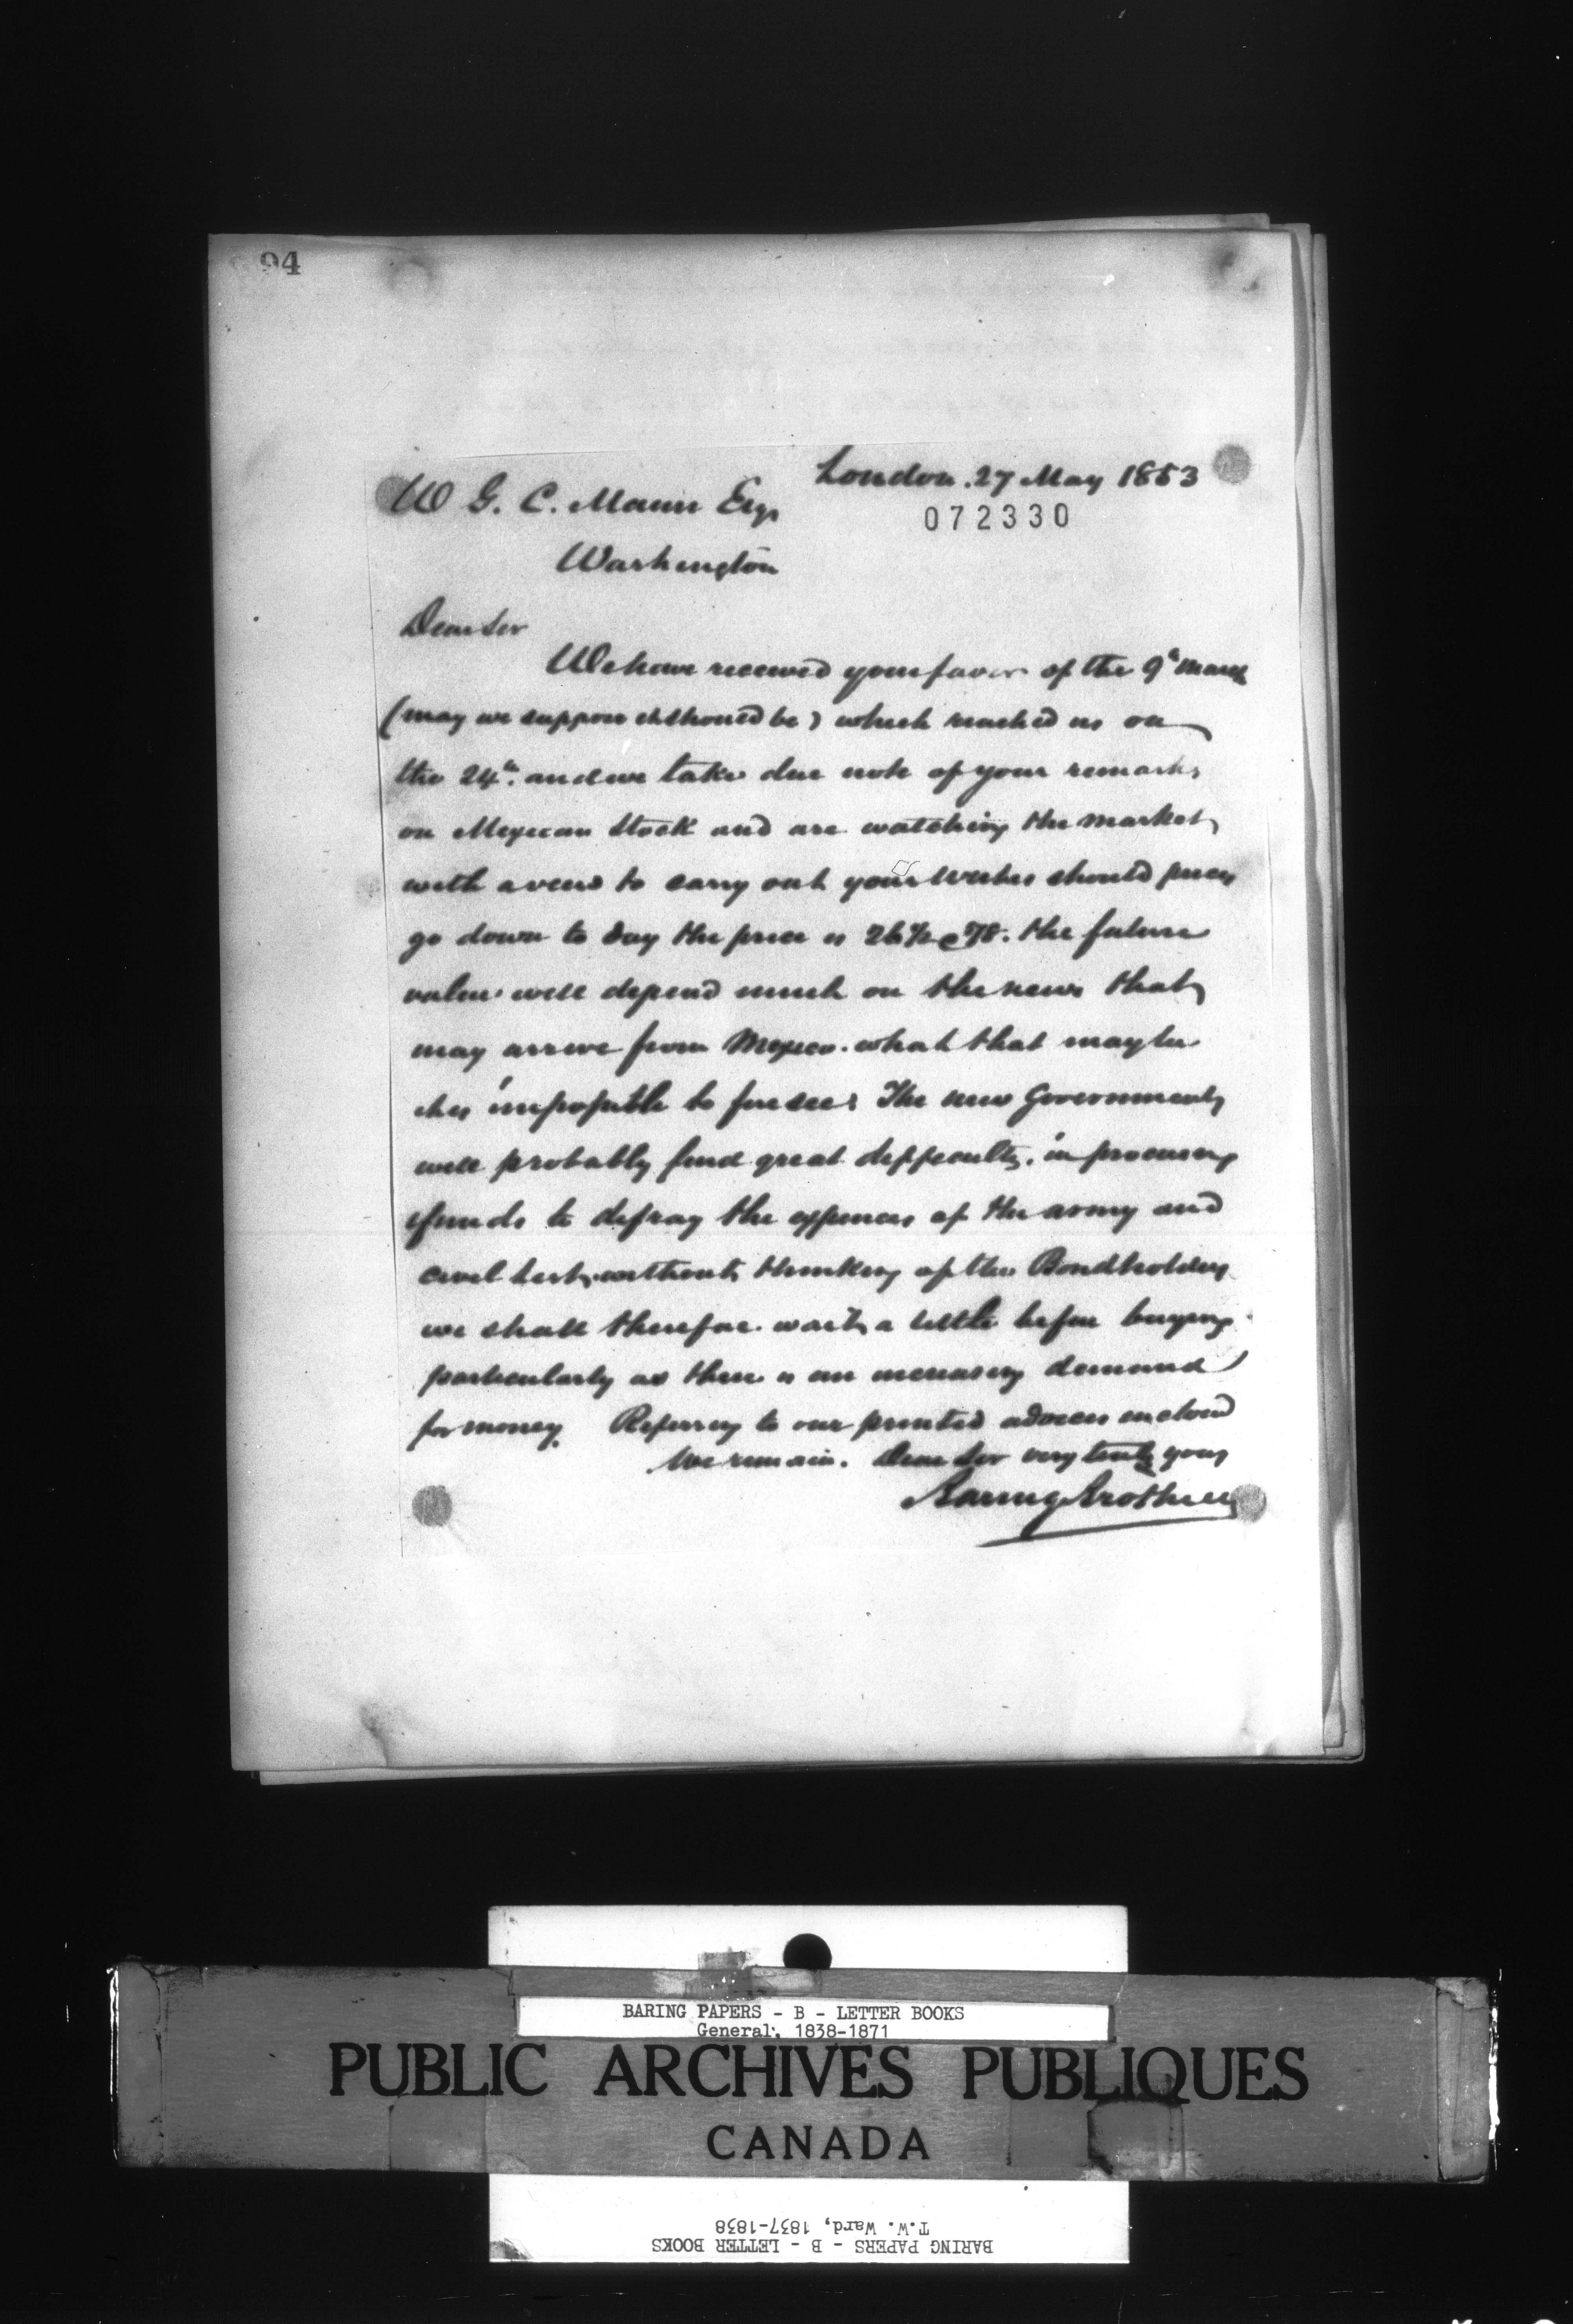 94
London. 27 May 1853
W G. C. Mann Esqr
072330
Washington
Dear Sir
We have received your favor of the 9th March
(may we suppose it should be) which reached us on
the 24th. and we take due note of your remarks
on Mexican Stock and are watching the market
with a view to carry out your wishes should prices
go down to day the price is 26½ @ ⅞. the future
value will depend much on the news that
may arrive from Mexico. what that may be
it is impossible to foresee: The new Government
will probably find great difficulty. in procuring
funds to defray the expences of the army and
civil list, without thinking of the Bondholders
we shall therefore wait a little before buying
particularly as there is an increasing demand
for money. Referring to our printed advices enclosed
We remain. Dear Sir very truly yours
Baring Brothers
BARING PAPERS - B - LETTER BOOKS
General, 1838-1871
PUBLIC ARCHIVES PUBLIQUES
CANADA
BARING PAPERS - B - LETTER BOOKS
T.W. Ward, 1837-1838